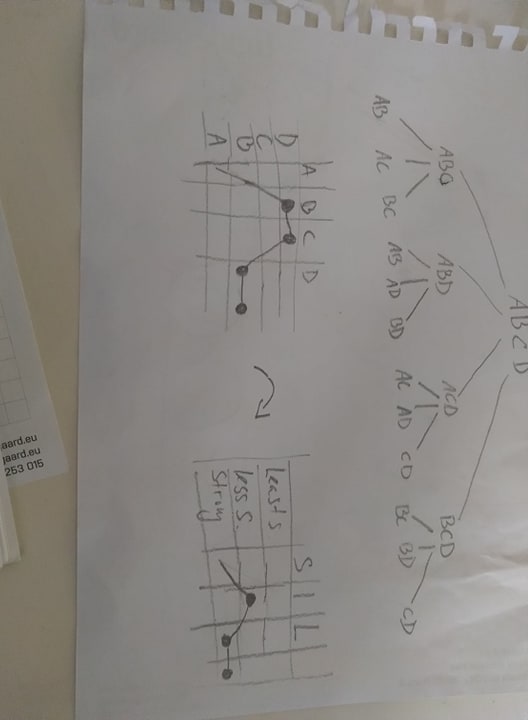 ABCD
ABC ABD ACD BCD
AB AC BC AB AD BD AC AD CD BC BD CD
A B C D
D
C
B
A
S I L
Least S
less S.
Strong
aard.eu
gaard.eu
253 015